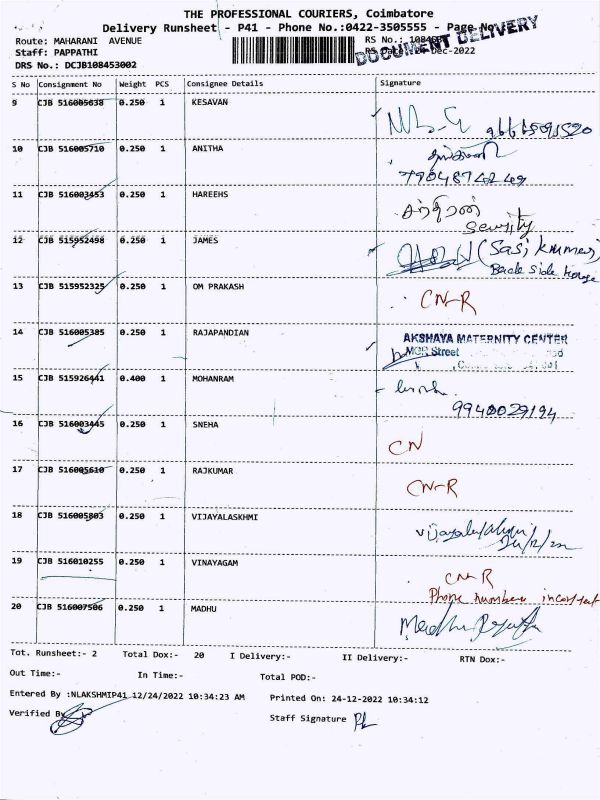 THE PROFESSIONAL COURIERS, Coimbatore
Delivery Runsheet - P41 - Phone No.:0422-3505555 - Page No
Route: MAHARANI AVENUE
RS No.:
Staff: PAPPATHI
RS Date: 24-Dec-2022
DOCUMENT DELIVERY
DRS No.: DCJB108453002
S No Consignment No Weight PCS Consignee Details Signature
9 CJB 516005638 0.250 1 KESAVAN
9666591520
10 CJB 516005710 0.250 1 ANITHA
7904874249
11 CJB 516003453 0.250 1 HAREEHS
Security
12 CJB 515952498 0.250 1 JAMES
(Sasi kumar)
Back side house
13 CJB 515952325 0.250 1 OM PRAKASH
CN-R
14 CJB 516005385 0.250 1 RAJAPANDIAN
AKSHAYA MATERNITY CENTER
MGR Street
15 CJB 515926441 0.400 1 MOHANRAM
9940029194
16 CJB 516003445 0.250 1 SNEHA
CN
17 CJB 516005610 0.250 1 RAJKUMAR
CN-R
18 CJB 516005803 0.250 1 VIJAYALASKHMI
24/12/22
19 CJB 516010255 0.250 1 VINAYAGAM
CN-R
Phone number incorrect
20 CJB 516007506 0.250 1 MADHU
Tot. Runsheet:- 2 Total Dox:- 20 I Delivery:- II Delivery:- RTN Dox:-
Out Time:- In Time:- Total POD:-
Entered By :NLAKSHMIP41 12/24/2022 10:34:23 AM Printed On: 24-12-2022 10:34:12
Verified By
Staff Signature